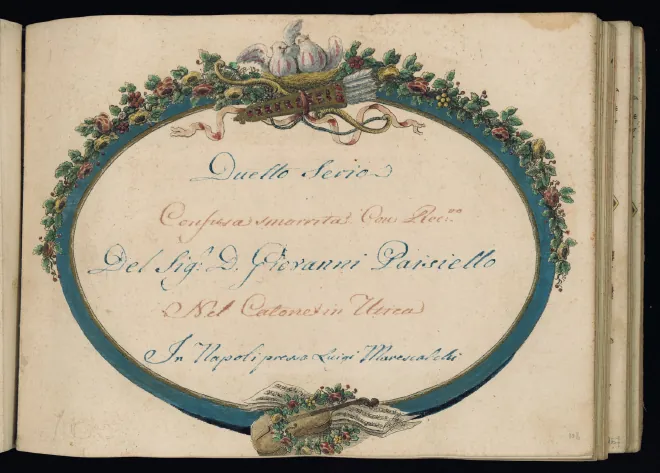 Duetto Serio
Confusa smarrita Con Rec.vo
Del Sig.r D. Giovanni Paisiello
Nel Catone in Utica
In Napoli presso Luigi Marescalchi